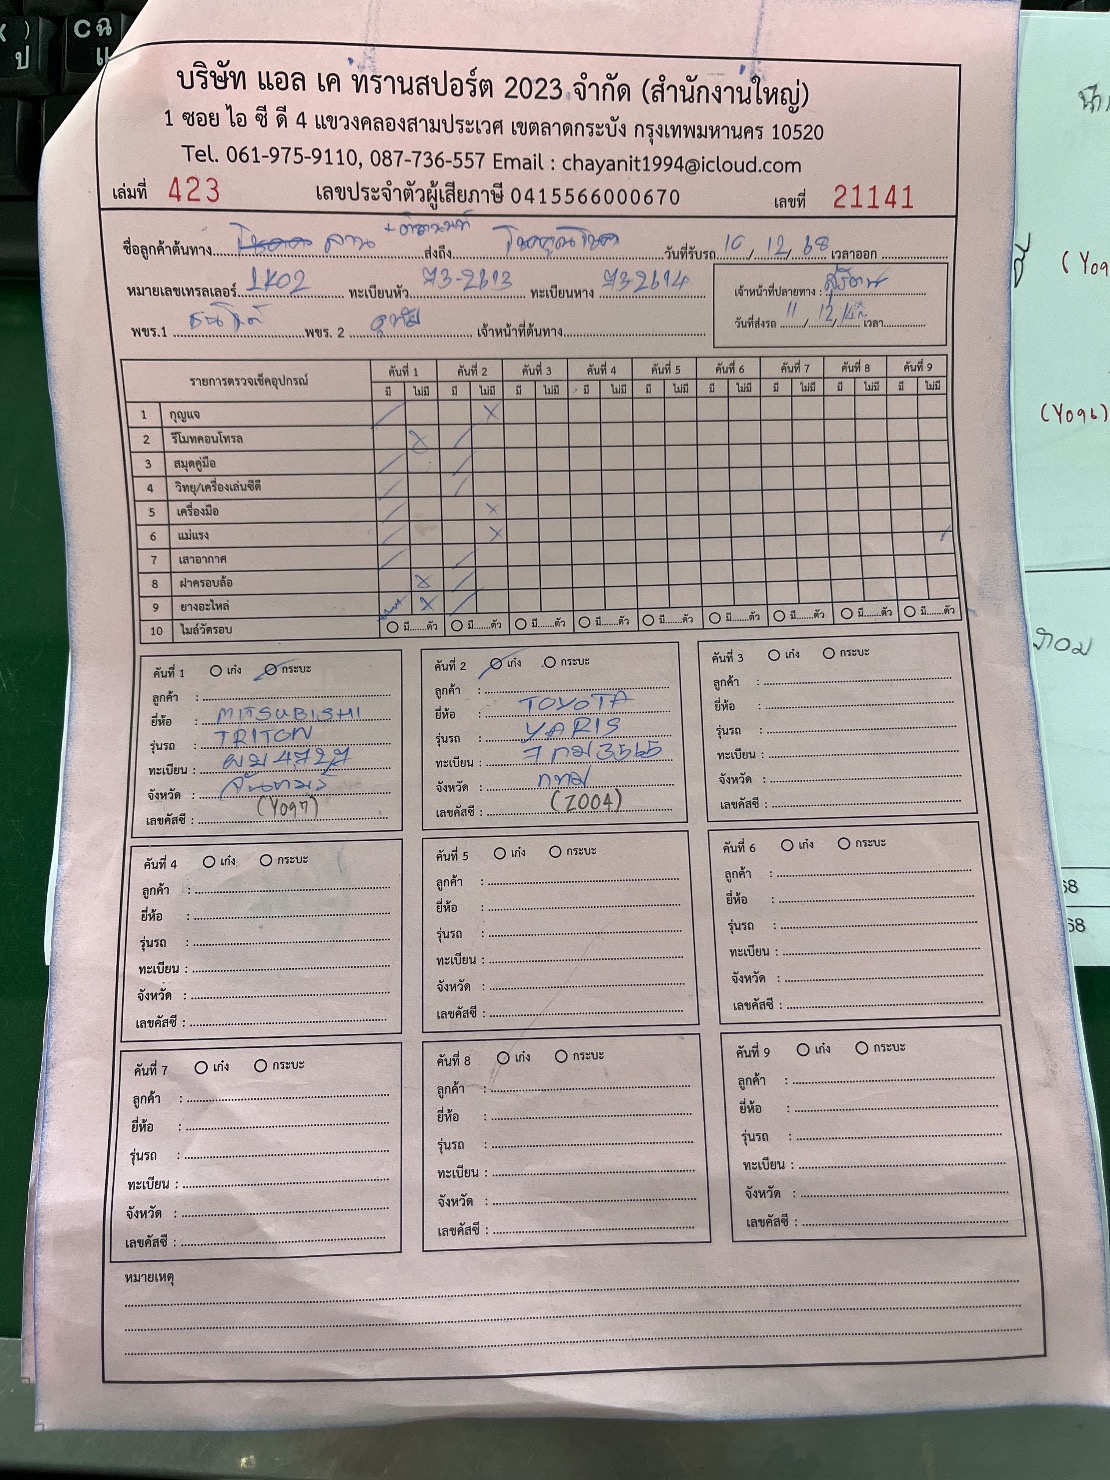 บริษัท แอล เค ทรานสปอร์ต 2023 จำกัด (สำนักงานใหญ่)
1 ซอย ไอ ซี ดี 4 แขวงคลองสามประเวศ เขตลาดกระบัง กรุงเทพมหานคร 10520
Tel. 061-975-9110, 087-736-557 Email : chayanit1994@icloud.com
เล่มที่ 423 เลขประจำตัวผู้เสียภาษี 0415566000670 เลขที่ 21141
ชื่อลูกค้าต้นทาง ลาน ส่งถึง วันที่รับรถ 10/12/68 เวลาออก
หมายเลขเทรลเลอร์ LK02 ทะเบียนหัว 73-2613 ทะเบียนหาง 73-2614 เจ้าหน้าที่ปลายทาง :
พขร.1 พขร. 2 เจ้าหน้าที่ต้นทาง วันที่ส่งรถ 11/12/ เวลา
รายการตรวจเช็คอุปกรณ์ คันที่ 1 คันที่ 2 คันที่ 3 คันที่ 4 คันที่ 5 คันที่ 6 คันที่ 7 คันที่ 8 คันที่ 9
มี ไม่มี มี ไม่มี มี ไม่มี มี ไม่มี มี ไม่มี มี ไม่มี มี ไม่มี มี ไม่มี มี ไม่มี
1 กุญแจ
2 รีโมทคอนโทรล
3 สมุดคู่มือ
4 วิทยุ/เครื่องเล่นซีดี
5 เครื่องมือ
6 แม่แรง
7 เสาอากาศ
8 ฝาครอบล้อ
9 ยางอะไหล่
10 ไมล์วัดรอบ มี......ตัว มี......ตัว มี......ตัว มี......ตัว มี......ตัว มี......ตัว มี......ตัว มี......ตัว มี......ตัว
คันที่ 1 เก๋ง กระบะ
ลูกค้า :
ยี่ห้อ : MITSUBISHI
รุ่นรถ : TRITON
ทะเบียน : ผม 4727
จังหวัด : จันทบุรี
เลขคัสซี : (Y097)
คันที่ 2 เก๋ง กระบะ
ลูกค้า :
ยี่ห้อ : TOYOTA
รุ่นรถ : YARIS
ทะเบียน : 7 กม 3565
จังหวัด : กทม
เลขคัสซี : (Z004)
คันที่ 3 เก๋ง กระบะ
ลูกค้า :
ยี่ห้อ :
รุ่นรถ :
ทะเบียน :
จังหวัด :
เลขคัสซี :
คันที่ 4 เก๋ง กระบะ
ลูกค้า :
ยี่ห้อ :
รุ่นรถ :
ทะเบียน :
จังหวัด :
เลขคัสซี :
คันที่ 5 เก๋ง กระบะ
ลูกค้า :
ยี่ห้อ :
รุ่นรถ :
ทะเบียน :
จังหวัด :
เลขคัสซี :
คันที่ 6 เก๋ง กระบะ
ลูกค้า :
ยี่ห้อ :
รุ่นรถ :
ทะเบียน :
จังหวัด :
เลขคัสซี :
คันที่ 7 เก๋ง กระบะ
ลูกค้า :
ยี่ห้อ :
รุ่นรถ :
ทะเบียน :
จังหวัด :
เลขคัสซี :
คันที่ 8 เก๋ง กระบะ
ลูกค้า :
ยี่ห้อ :
รุ่นรถ :
ทะเบียน :
จังหวัด :
เลขคัสซี :
คันที่ 9 เก๋ง กระบะ
ลูกค้า :
ยี่ห้อ :
รุ่นรถ :
ทะเบียน :
จังหวัด :
เลขคัสซี :
หมายเหตุ
(Y096)
68
68